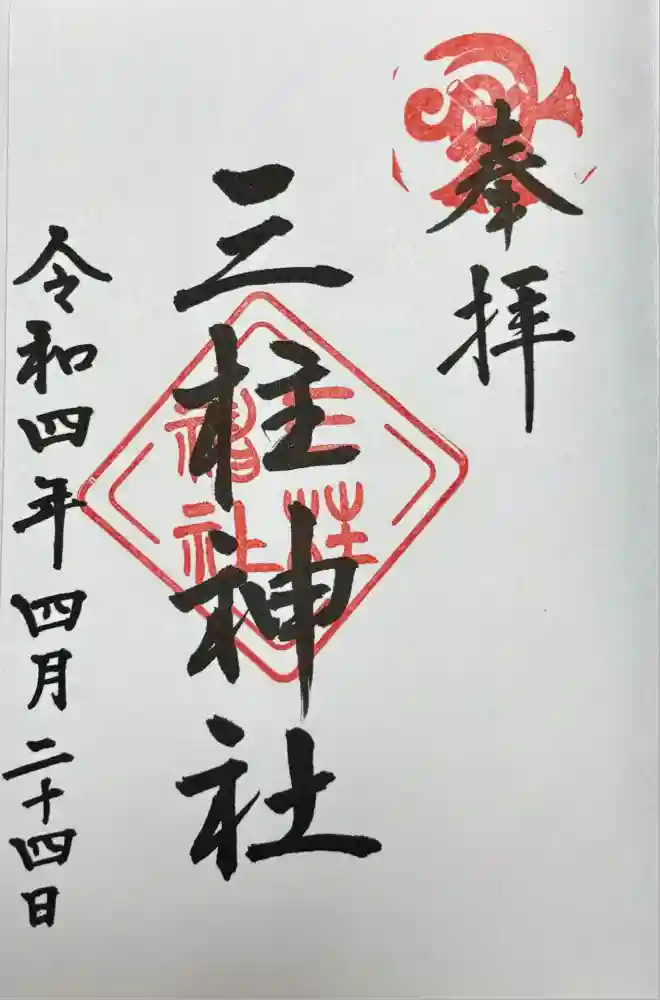 奉拝
三柱神社
令和四年四月二十四日
三柱
神社